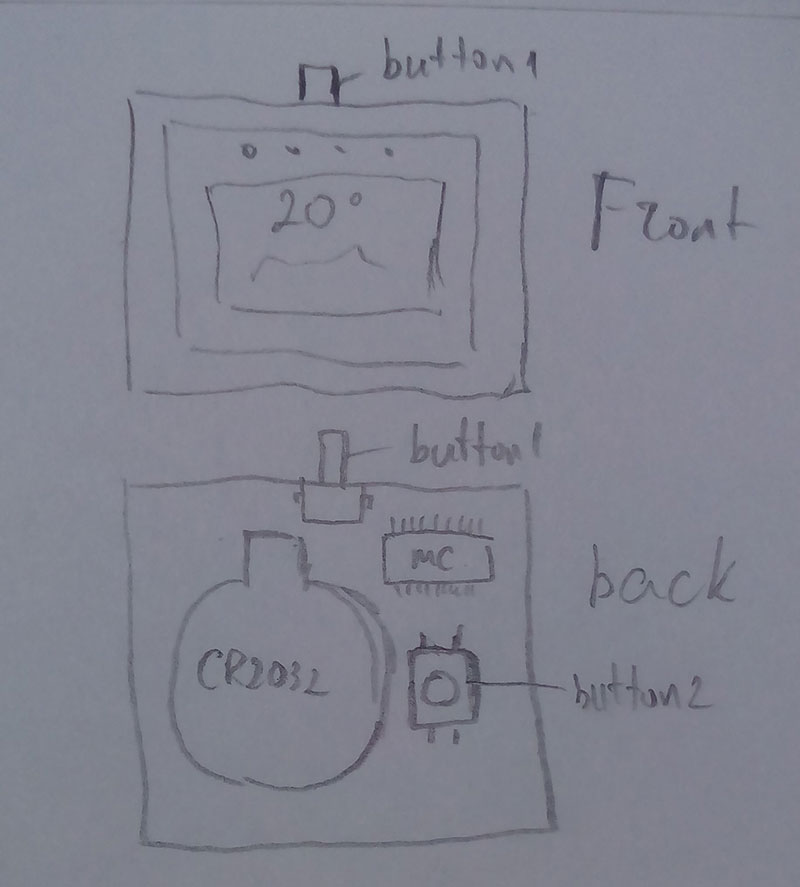 button1
20°
Front
button1
MC
back
CR2032
button2